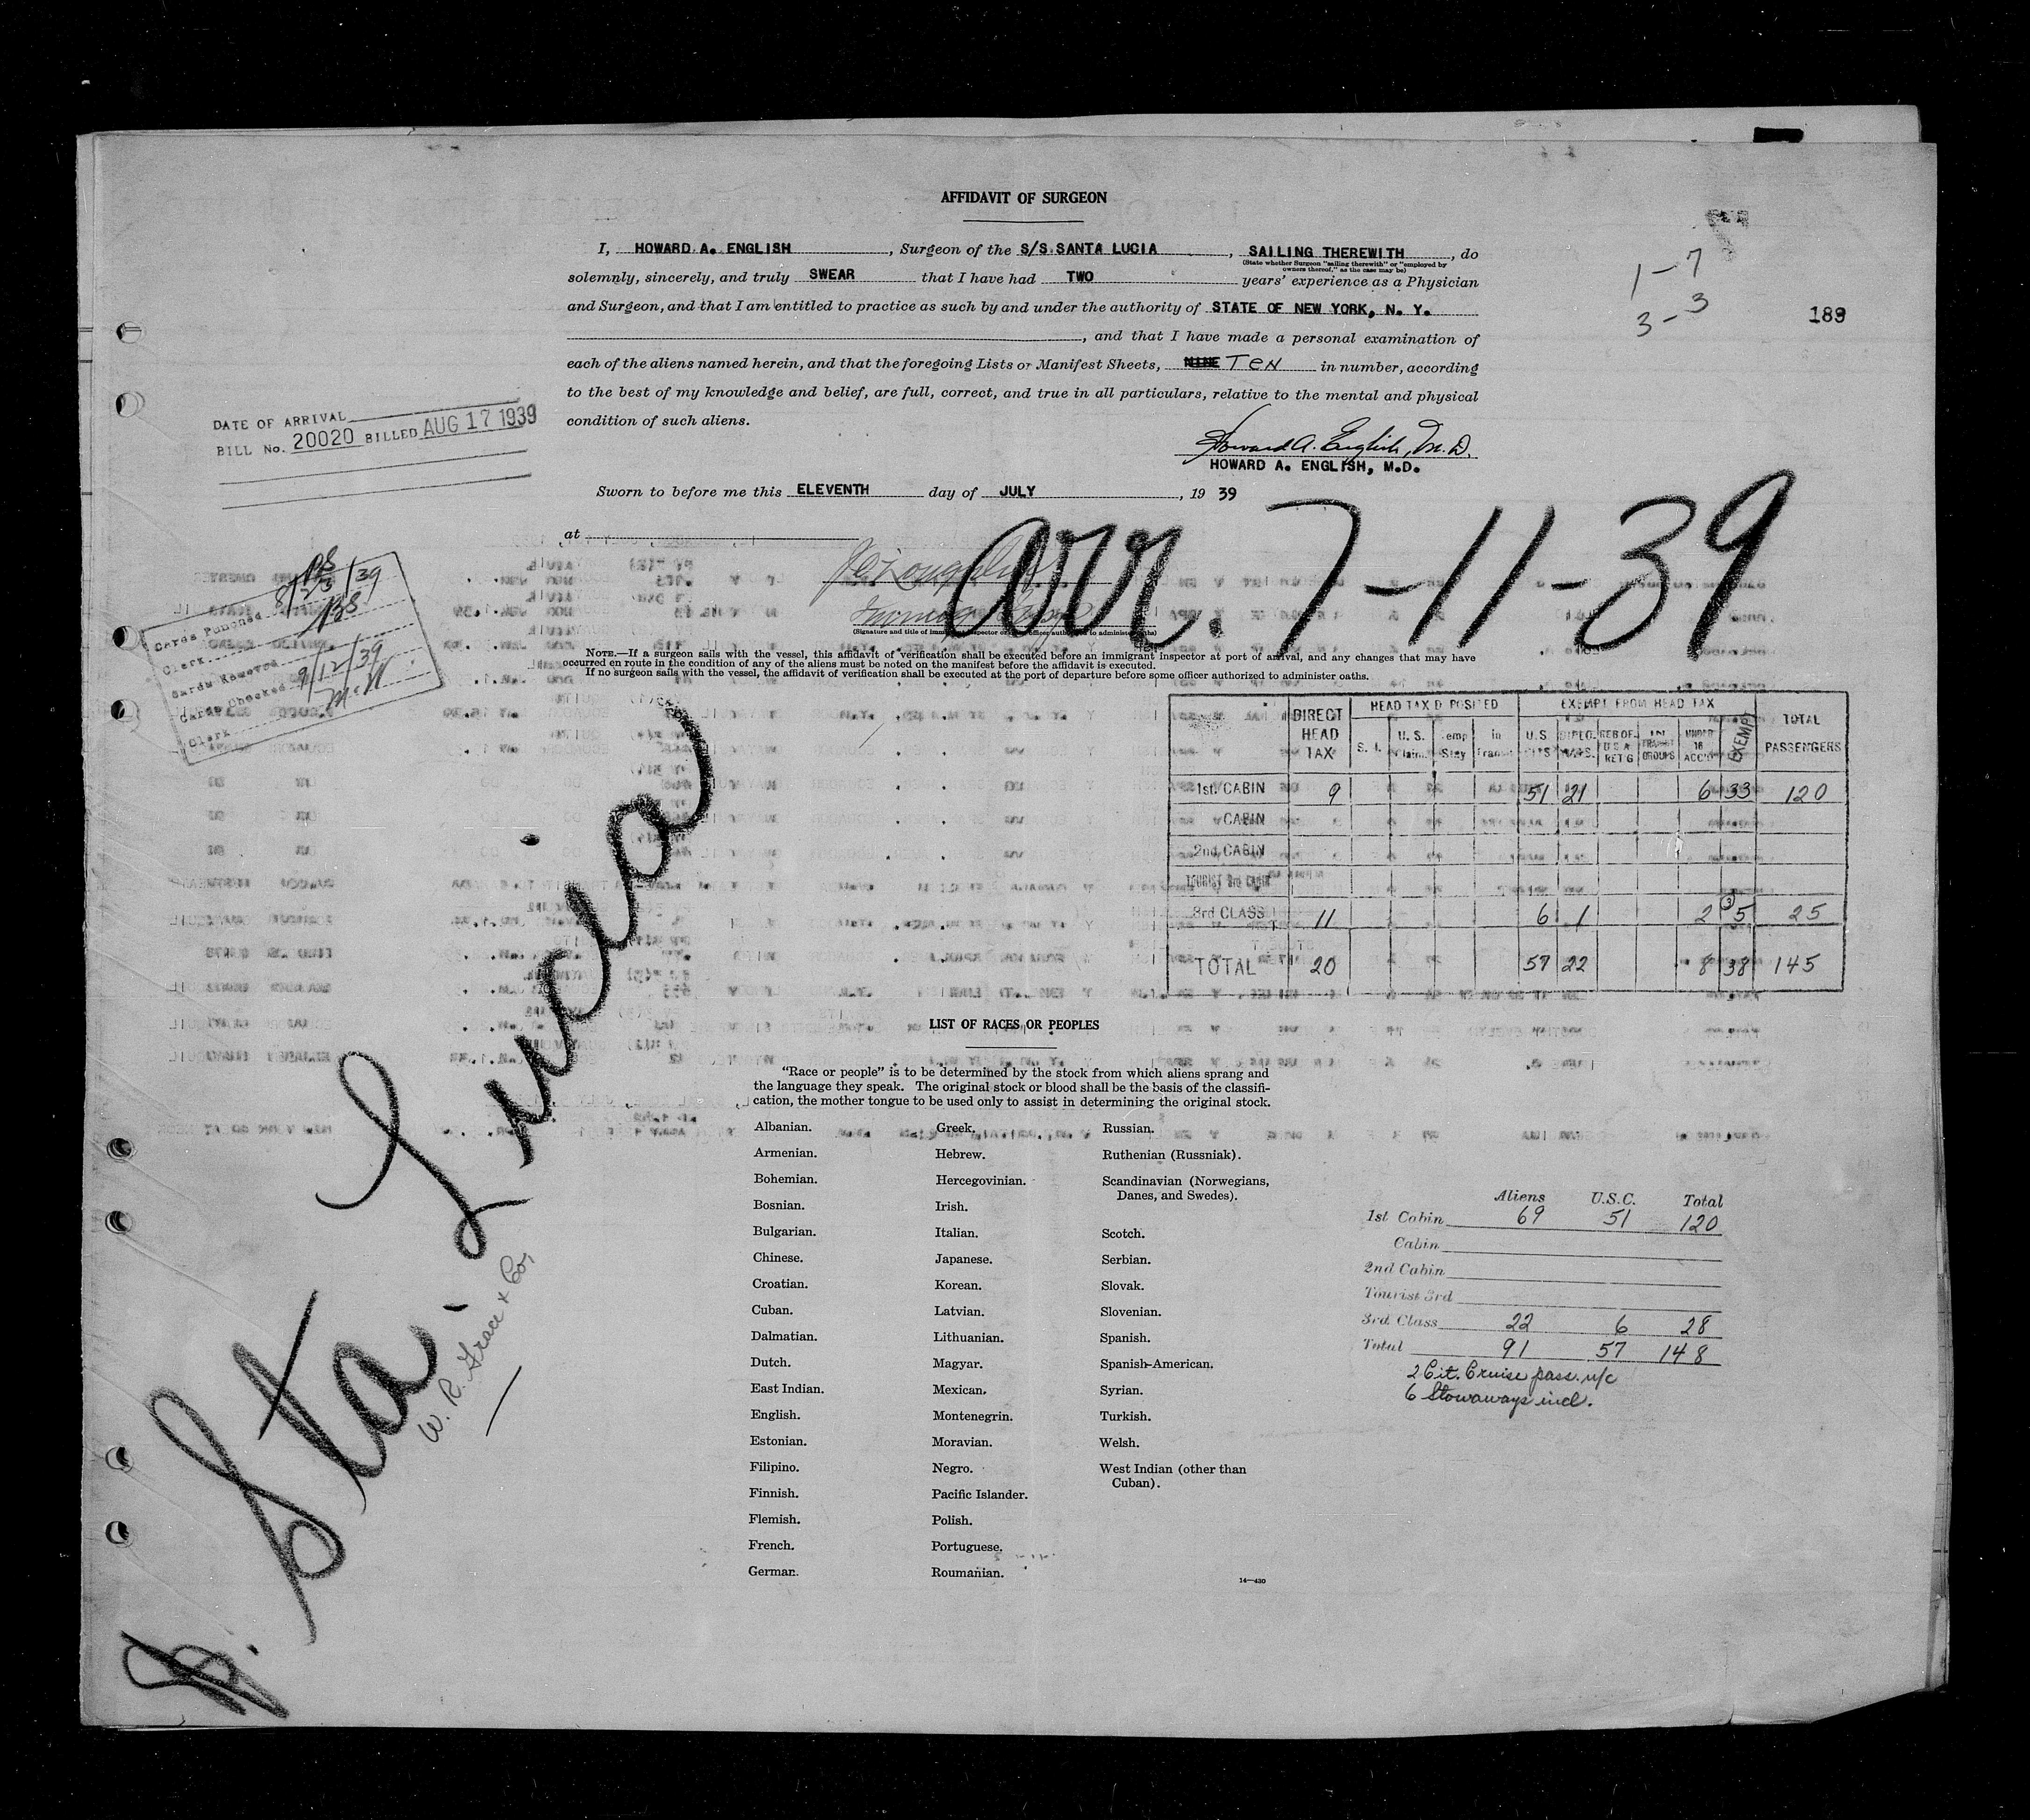 AFFIDAVIT OF SURGEON
I, HOWARD A. ENGLISH, Surgeon of the S/S SANTA LUCIA, SAILING THEREWITH, do
(State whether Surgeon "sailing therewith" or "employed by
owners thereof," as the case may be)
solemnly, sincerely, and truly SWEAR that I have had TWO years' experience as a Physician
and Surgeon, and that I am entitled to practice as such by and under the authority of STATE OF NEW YORK, N. Y.
, and that I have made a personal examination of
each of the aliens named herein, and that the foregoing Lists or Manifest Sheets, NINE TEN in number, according
to the best of my knowledge and belief, are full, correct, and true in all particulars, relative to the mental and physical
condition of such aliens.
Howard A. English, M.D.
HOWARD A. ENGLISH, M.D.
Sworn to before me this ELEVENTH day of JULY, 19 39
at
arr. 7-11-39
(Signature and title of immigrant inspector or other officer authorized to administer oaths)
NOTE.—If a surgeon sails with the vessel, this affidavit of verification shall be executed before an immigrant inspector at port of arrival, and any changes that may have
occurred en route in the condition of any of the aliens must be noted on the manifest before the affidavit is executed.
If no surgeon sails with the vessel, the affidavit of verification shall be executed at the port of departure before some officer authorized to administer oaths.
1-7
3-3
189
DATE OF ARRIVAL
BILL No. 20020 BILLED AUG 17 1939
Cards Punched 8/23/39
Clerk
Cards Removed
Cards Checked 9/12/39
Clerk
S. Sta. Lucia
W. R. Grace & Co.
DIRECT HEAD TAX HEAD TAX D POSITED EXEMPT FROM HEAD TAX TOTAL PASSENGERS
S. I. U. S. Claim. Temp Stay in Trans U.S. CITS DIPLO. RES OF U S A RET'G IN TRANSIT GROUPS UNDER 16 ACC'D EXEMPT
1st CABIN 9 51 21 6 33 120
CABIN
2nd CABIN
TOURIST 3rd CABIN
3rd CLASS 11 6 1 2 (3) 5 25
TOTAL 20 57 22 8 38 145
LIST OF RACES OR PEOPLES
"Race or people" is to be determined by the stock from which aliens sprang and
the language they speak. The original stock or blood shall be the basis of the classifi-
cation, the mother tongue to be used only to assist in determining the original stock.
Albanian.
Armenian.
Bohemian.
Bosnian.
Bulgarian.
Chinese.
Croatian.
Cuban.
Dalmatian.
Dutch.
East Indian.
English.
Estonian.
Filipino.
Finnish.
Flemish.
French.
German.
Greek.
Hebrew.
Hercegovinian.
Irish.
Italian.
Japanese.
Korean.
Latvian.
Lithuanian.
Magyar.
Mexican.
Montenegrin.
Moravian.
Negro.
Pacific Islander.
Polish.
Portuguese.
Roumanian.
Russian.
Ruthenian (Russniak).
Scandinavian (Norwegians,
Danes, and Swedes).
Scotch.
Serbian.
Slovak.
Slovenian.
Spanish.
Spanish-American.
Syrian.
Turkish.
Welsh.
West Indian (other than
Cuban).
14—430
Aliens U.S.C. Total
1st Cabin 69 51 120
Cabin
2nd Cabin
Tourist 3rd
3rd Class 22 6 28
Total 91 57 148
2 Cit. Cruise pass. n/c
6 Stowaways incl.